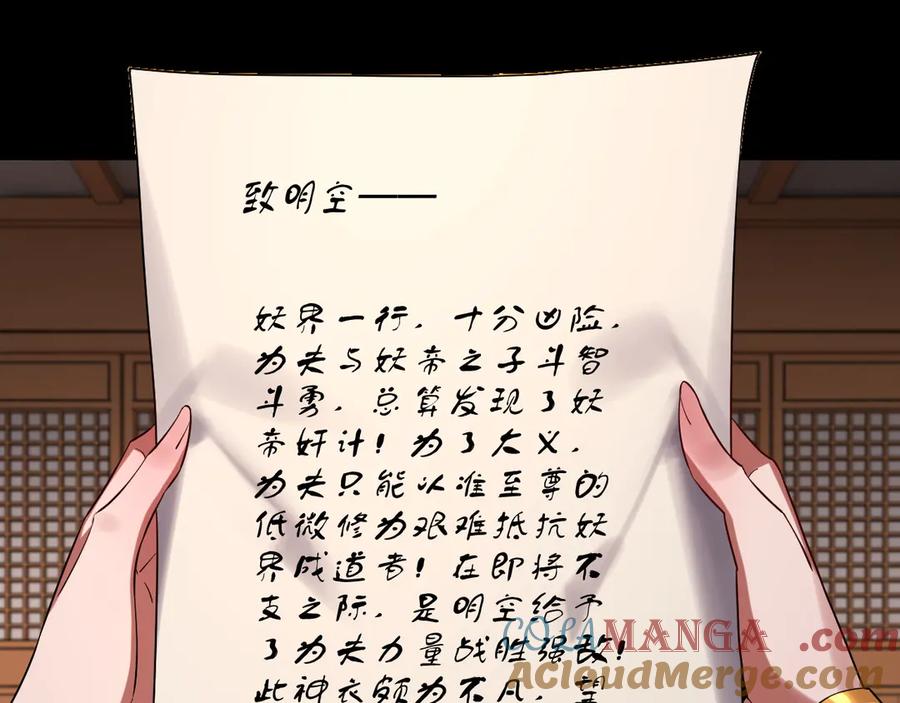 致明空——
妖界一行，十分凶险，
为夫与妖帝之子斗智
斗勇，总算发现了妖
帝奸计！为了大义，
为夫只能以准至尊的
低微修为艰难抵抗妖
界成道者！在即将不
支之际，是明空给予
了为夫力量战胜强敌！
此神衣颇为不凡，望
COLAMANGA.com
AcloudMerge.com